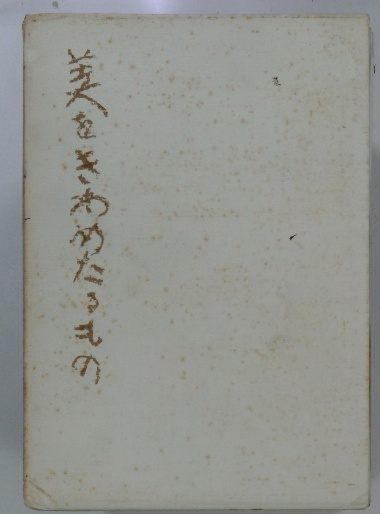 美をきわめたるもの